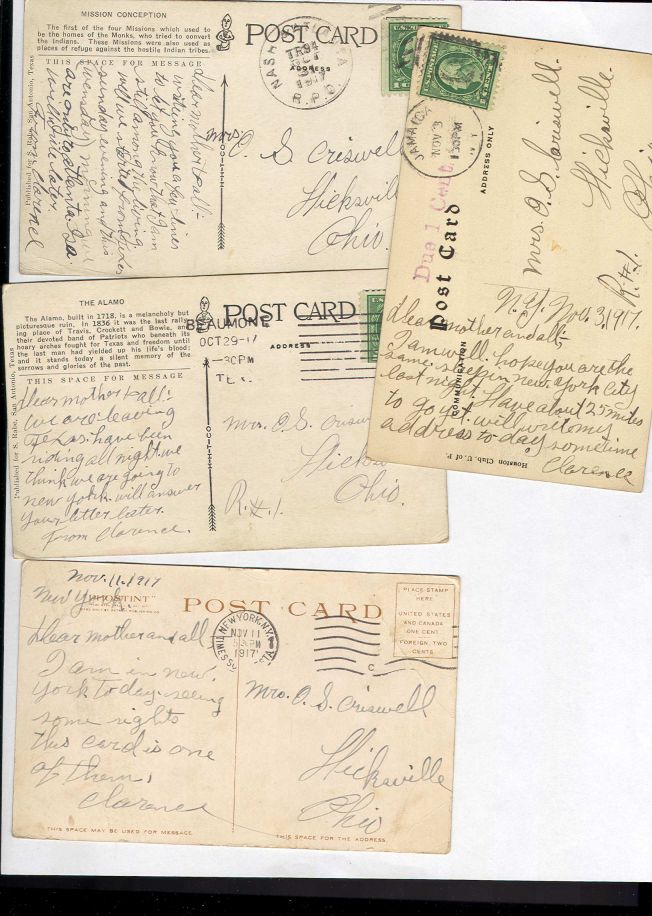 MISSION CONCEPTION
The first of the four Missions which used to
be the homes of the Monks, who tried to convert
the Indians. These Missions were also used as
places of refuge against the hostile Indian tribes.
THIS SPACE FOR MESSAGE
Published by S. Rube, San Antonio, Texas
Dear mother & all:-
writing you a few lines
to let you know that I am
still among the living
well we started from
sunday evening and this
wensday morning we
are only to atlanta Ga.
will write later.
from Clarence
POST CARD
ADDRESS
NASH
TR.94
OCT
1917
R.P.O.
Mrs. O. S. Criswell
Hicksville
Ohio.
THE ALAMO
The Alamo, built in 1718, is a melancholy but
picturesque ruin. In 1836 it was the last rally-
ing place of Travis, Crockett and Bowie, and
their devoted band of Patriots who beneath its
hoary arches fought for Texas and freedom until
the last man had yielded up his life's blood;
and it stands today a silent memory of the
sorrows and glories of the past.
THIS SPACE FOR MESSAGE
Published for S. Rube, San Antonio, Texas
Dear mother & all:-
we are leaving
Texas. have been
riding all night. we
think we are going to
new york. will answer
your letter later.
from Clarence.
POST CARD
BEAUMONT
OCT 29-17
-3 30PM
TEX.
Mrs. O. S. Criswell
Hicksville
Ohio.
R.#1.
JAMAICA
NOV
Due 1 Cent
Post Card
ADDRESS ONLY
COMMUNICATION
Houston Club, U. of P.
Mrs. O. S. Criswell.
Hicksville.
Ohio
R.#1.
N.Y. Nov. 3, 1917.
Dear mother and all;-
I am well. hope you are the
same. sleep in new york City
last night. Have about 25 miles
to go yet. will write my
address to day sometime
Clarence
Nov. 11. 1917
New York.
"PHOSTINT"
POST CARD
PLACE STAMP
HERE
UNITED STATES
AND CANADA
ONE CENT
FOREIGN, TWO
CENTS
NEW YORK, N.Y.
NOV 11
PM
1917
TIMES SQ. STA.
Dear mother and all
I am in new
york to day. seeing
some sights
this card is one
of them.
Clarence
Mrs. O. S. Criswell
Hicksville
Ohio
THIS SPACE MAY BE USED FOR MESSAGE.
THIS SPACE FOR THE ADDRESS.